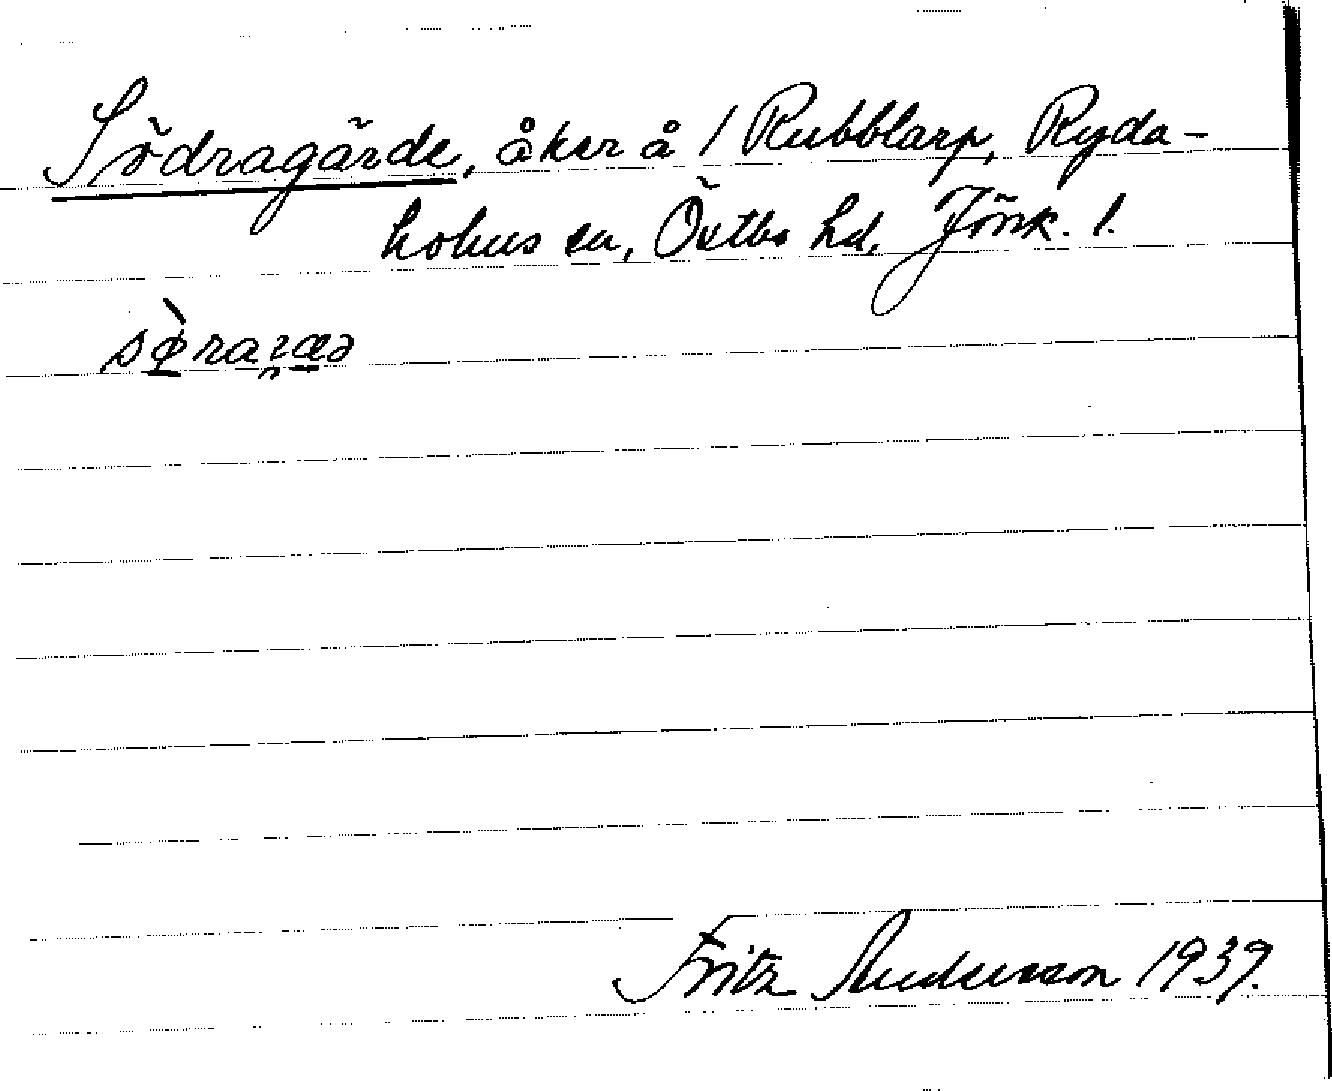 Södragärde, åker å 1 Rubblarp, Ryda-
holms sn, Östbo hd, Jönk. l.
Fritz Andersson 1939.